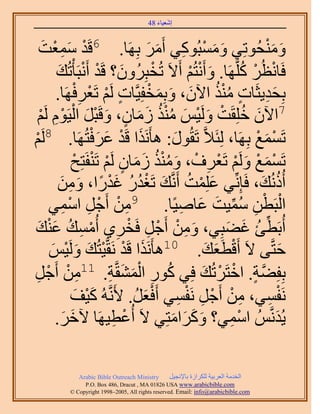 إشعياء 48
وَمَنْحُوتِي وَمَسْبُوكِي أَمَرَ بِهَا. 6قَدْ سَمِعْتَ
فَانْظُرْ كُلَّهَا. وَأَنْتُمْ أَلاَ تُخْبِرُونَ؟ قَدْ أَنْبَأْتُكَ
بِحَدِيثَاتٍ مُنْذُ الآنَ، وَبِمَخْفِيَّاتٍ لَمْ تَعْرِفْهَا.
7الآنَ خُلِقَتْ وَلَيْسَ مُنْذُ زَمَانٍ، وَقَبْلَ الْيَوْمِ لَمْ
تَسْمَعْ بِهَا، لِئَلاَّ تَقُولَ: هأَنَذَا قَدْ عَرَفْتُهَا. 8لَمْ
تَسْمَعْ وَلَمْ تَعْرِفْ، وَمُنْذُ زَمَانٍ لَمْ تَنْفَتِحْ
أُذُنُكَ، فَإِنِّي عَلِمْتُ أَنَّكَ تَغْدُرُ غَدْرًا، وَمِنَ
الْبَطْنِ سُمِّيتَ عَاصِيًا. 9مِنْ أَجْلِ اسْمِي
أُبَطِّئُ غَضَبِي، وَمِنْ أَجْلِ فَخْرِي أُمْسِكُ عَنْكَ
حَتَّى لاَ أَقْطَعَكَ. 10هأَنَذَا قَدْ نَقَّيْتُكَ وَلَيْسَ
بِفِضَّةٍ. اخْتَرْتُكَ فِي كُورِ الْمَشَقَّةِ. 11مِنْ أَجْلِ
نَفْسِي، مِنْ أَجْلِ نَفْسِي أَفْعَلُ. لأَنَّهُ كَيْفَ
يُدَنَّسُ اسْمِي؟ وَكَرَامَتِي لاَ أُعْطِيهَا لآخَرَ.
Arabic Bible Outreach Ministry الخدمة العربية للكرازة بالإنجيل
P.O. Box 486, Dracut , MA 01826 USA www.arabicbible.com
© Copyright 1998–2005, All rights reserved. Email: info@arabicbible.com